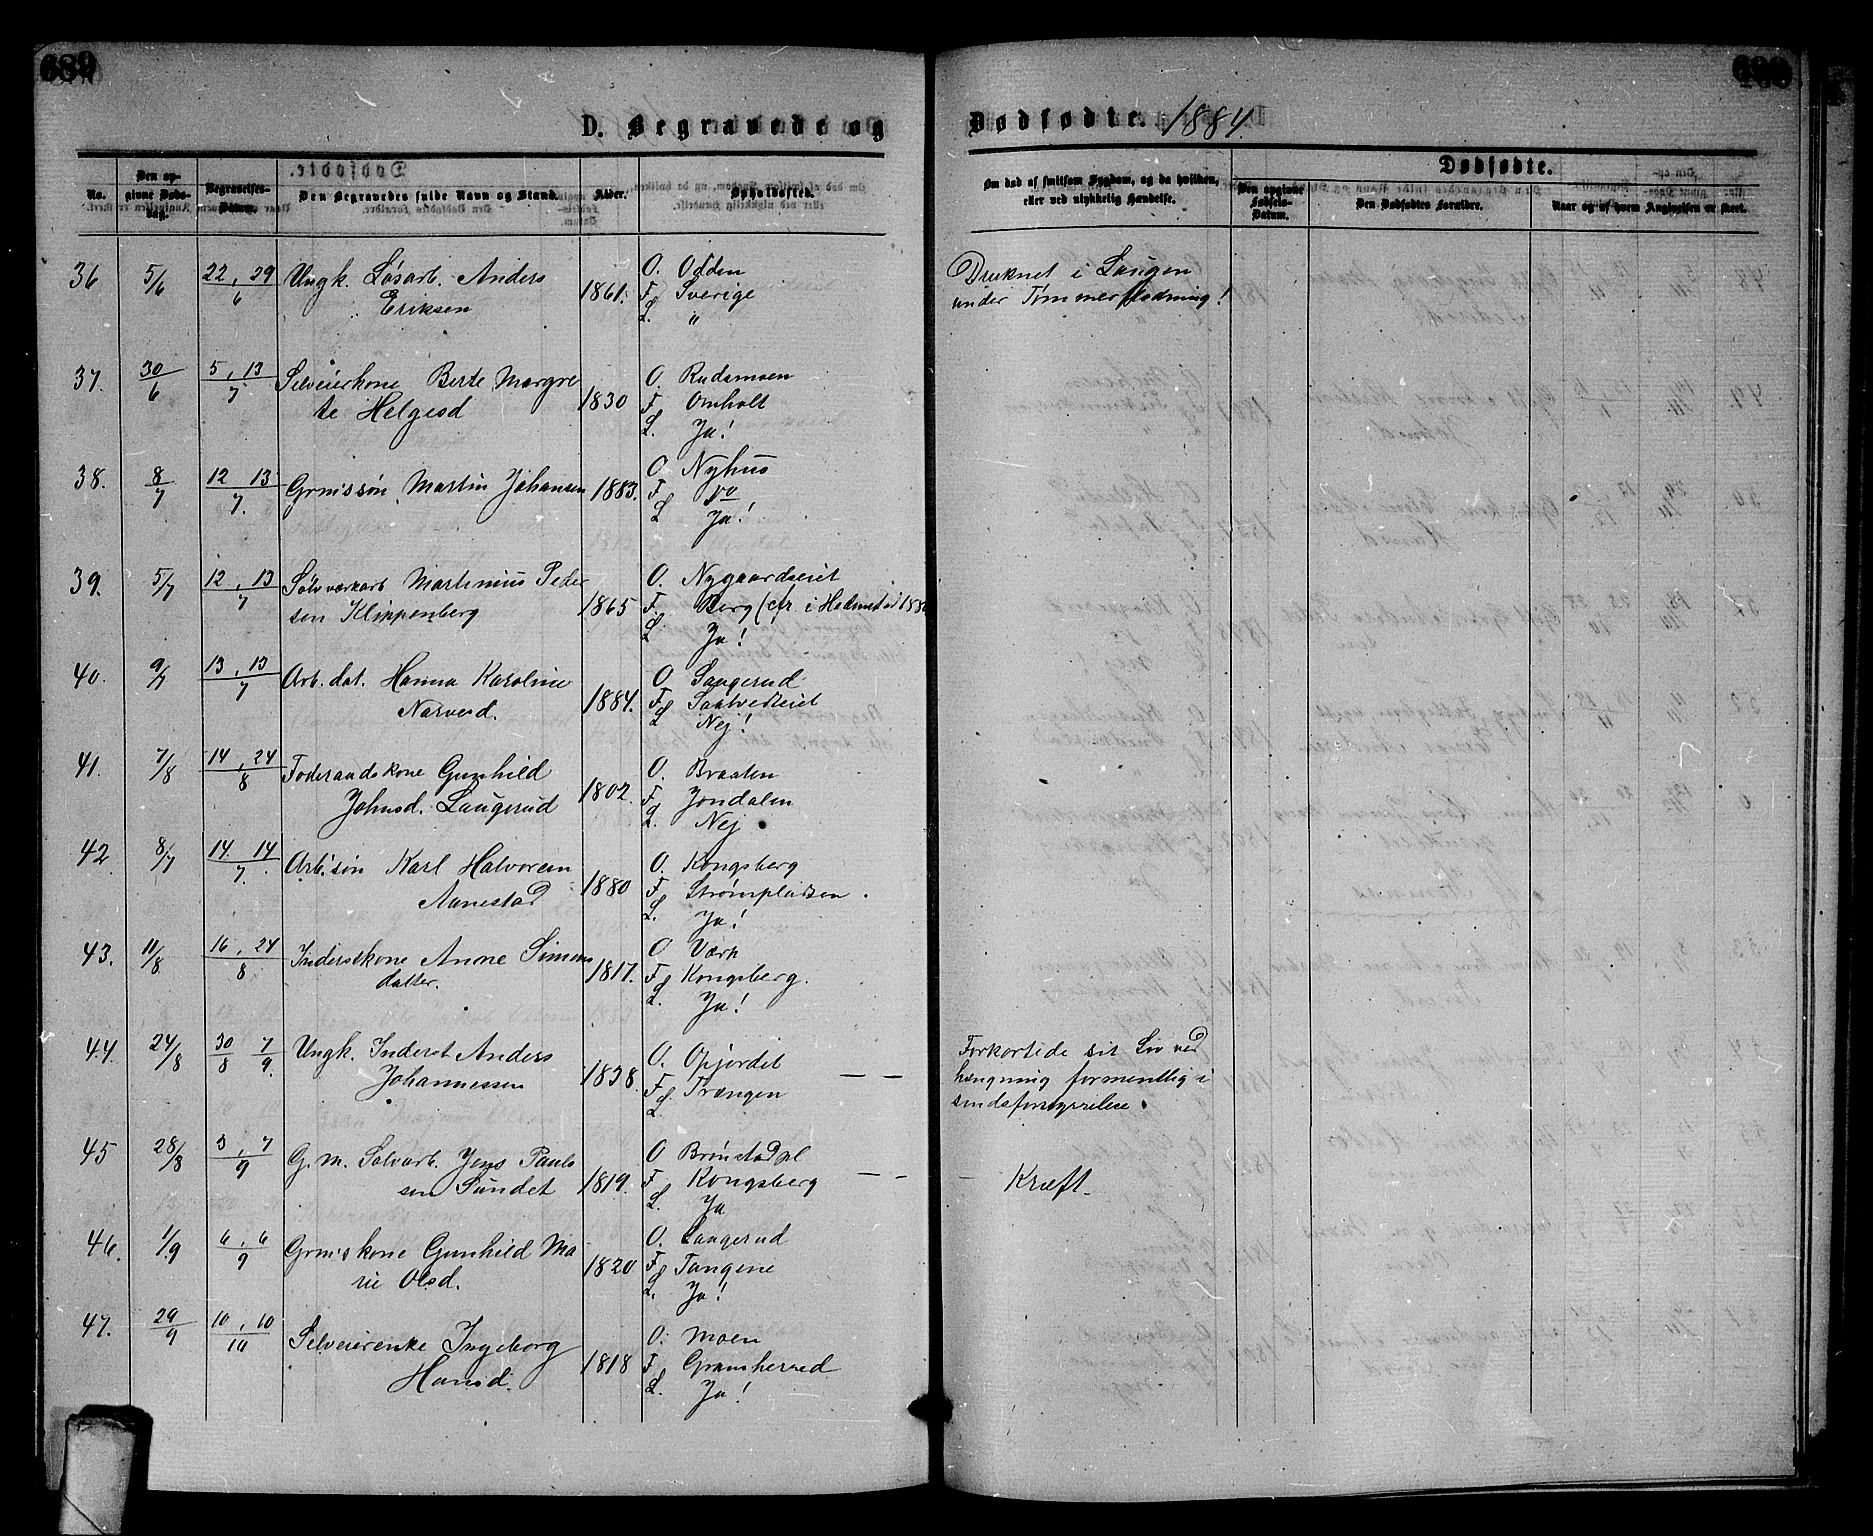 689
D. Begravede og
Dødfødte. 1884.
No.
Den opgivne Døds-
dag.
Begravelses-
Datum.
Den Begravedes fulde Navn og Stand.
Alder.
Opholdssted.
Om død af smitsom Sygdom, og da hvilken,
eller ved ulykkelig Hændelse.
Dødfødte.
Den opgivne
Fødsels-
Datum.
Den Dødfødtes Forældre.
Naar og af hvem Angivelsen er skeet.
36 5/6 22, 29/6 Ungk. Løsarb. Anders
Eriksen 1861.
O. Odden
F. Sverige
L. "
Druknet i Laugen
under Tømmerflødning!
37. 30/6 5, 13/7 Selveierkone Berte Margre
te Helgesd 1830
O. Rudsmoen
F. Omholt
L. Ja!
38. 8/7 12 13/7. Grmssøn Martin Johansen 1883.
O. Nyhus
F. do
L Ja!
39. 5/7 12, 13/7 Sølvværkarb Martinius Peder
sen Klippenberg 1865
O. Nygaardseiet
F. Berg (cfr. i Hedenstad 188
L. Ja!
40. 9/7 13, 13/7 Arb. dat. Hanna Karoline
Narvesd. 1884.
O Laugerud
F. Saatvedteiet
L Nej!
41. 7/8 14, 24/8 Foderaadskone Gunhild
Johnsd. Laugerud 1802.
O. Braaten
F. Jondalen
L. Nej
42 8/7 14. 14/7. Arb.søn Karl Halvorsen
Aanestad 1880
O. Kongsberg
F. Strømpladsen.
L. Ja!
43. 11/8 16, 24/8 Inderstkone Anne Simens
datter. 1817.
O Værk
F. Kongsberg.
L. Ja!
44. 24/8 30/8 7/9. Ungk. Inderst Anders
Johannessen 1838.
O. Opjordet
F. Trængen
L.
Forkortede sit Liv ved
hængning formentlig i
sindsforvirrelse.
45 28/8 3, 7/9 G. M. Sølvarb. Jens Pauls
sen Sundet 1819.
O Brønstadpl
F. Kongsberg
L. Ja
Kræft.
46. 1/9 6, 6/9 Grmskone Gunhild Ma
rie Olsd. 1820
O. Laugerud
F. Tangene
L. Ja!
47. 29/9 10, 10/10 Selveierenke Ingeborg
Hansd. 1818
O. Moen
F. Gransherred
L. Ja!